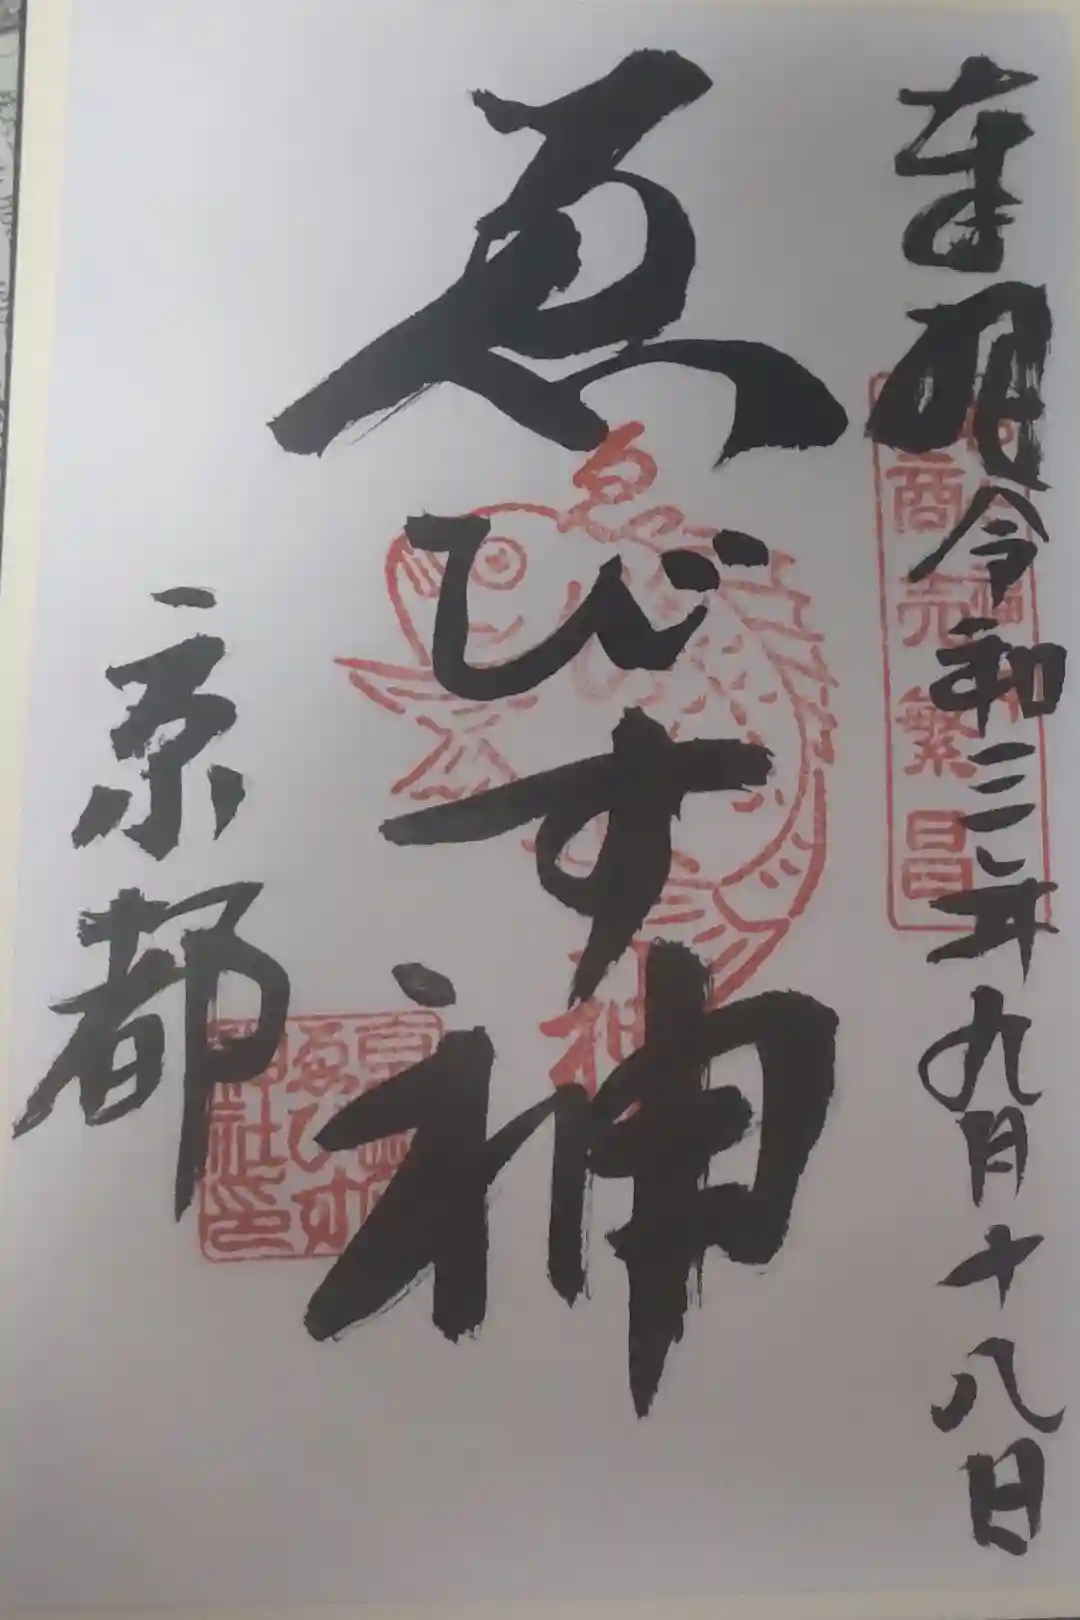 奉拝 令和三年九月十八日
商売繁昌
ゑびす神
ゑ
神
京都
京都
ゑびす
神社印